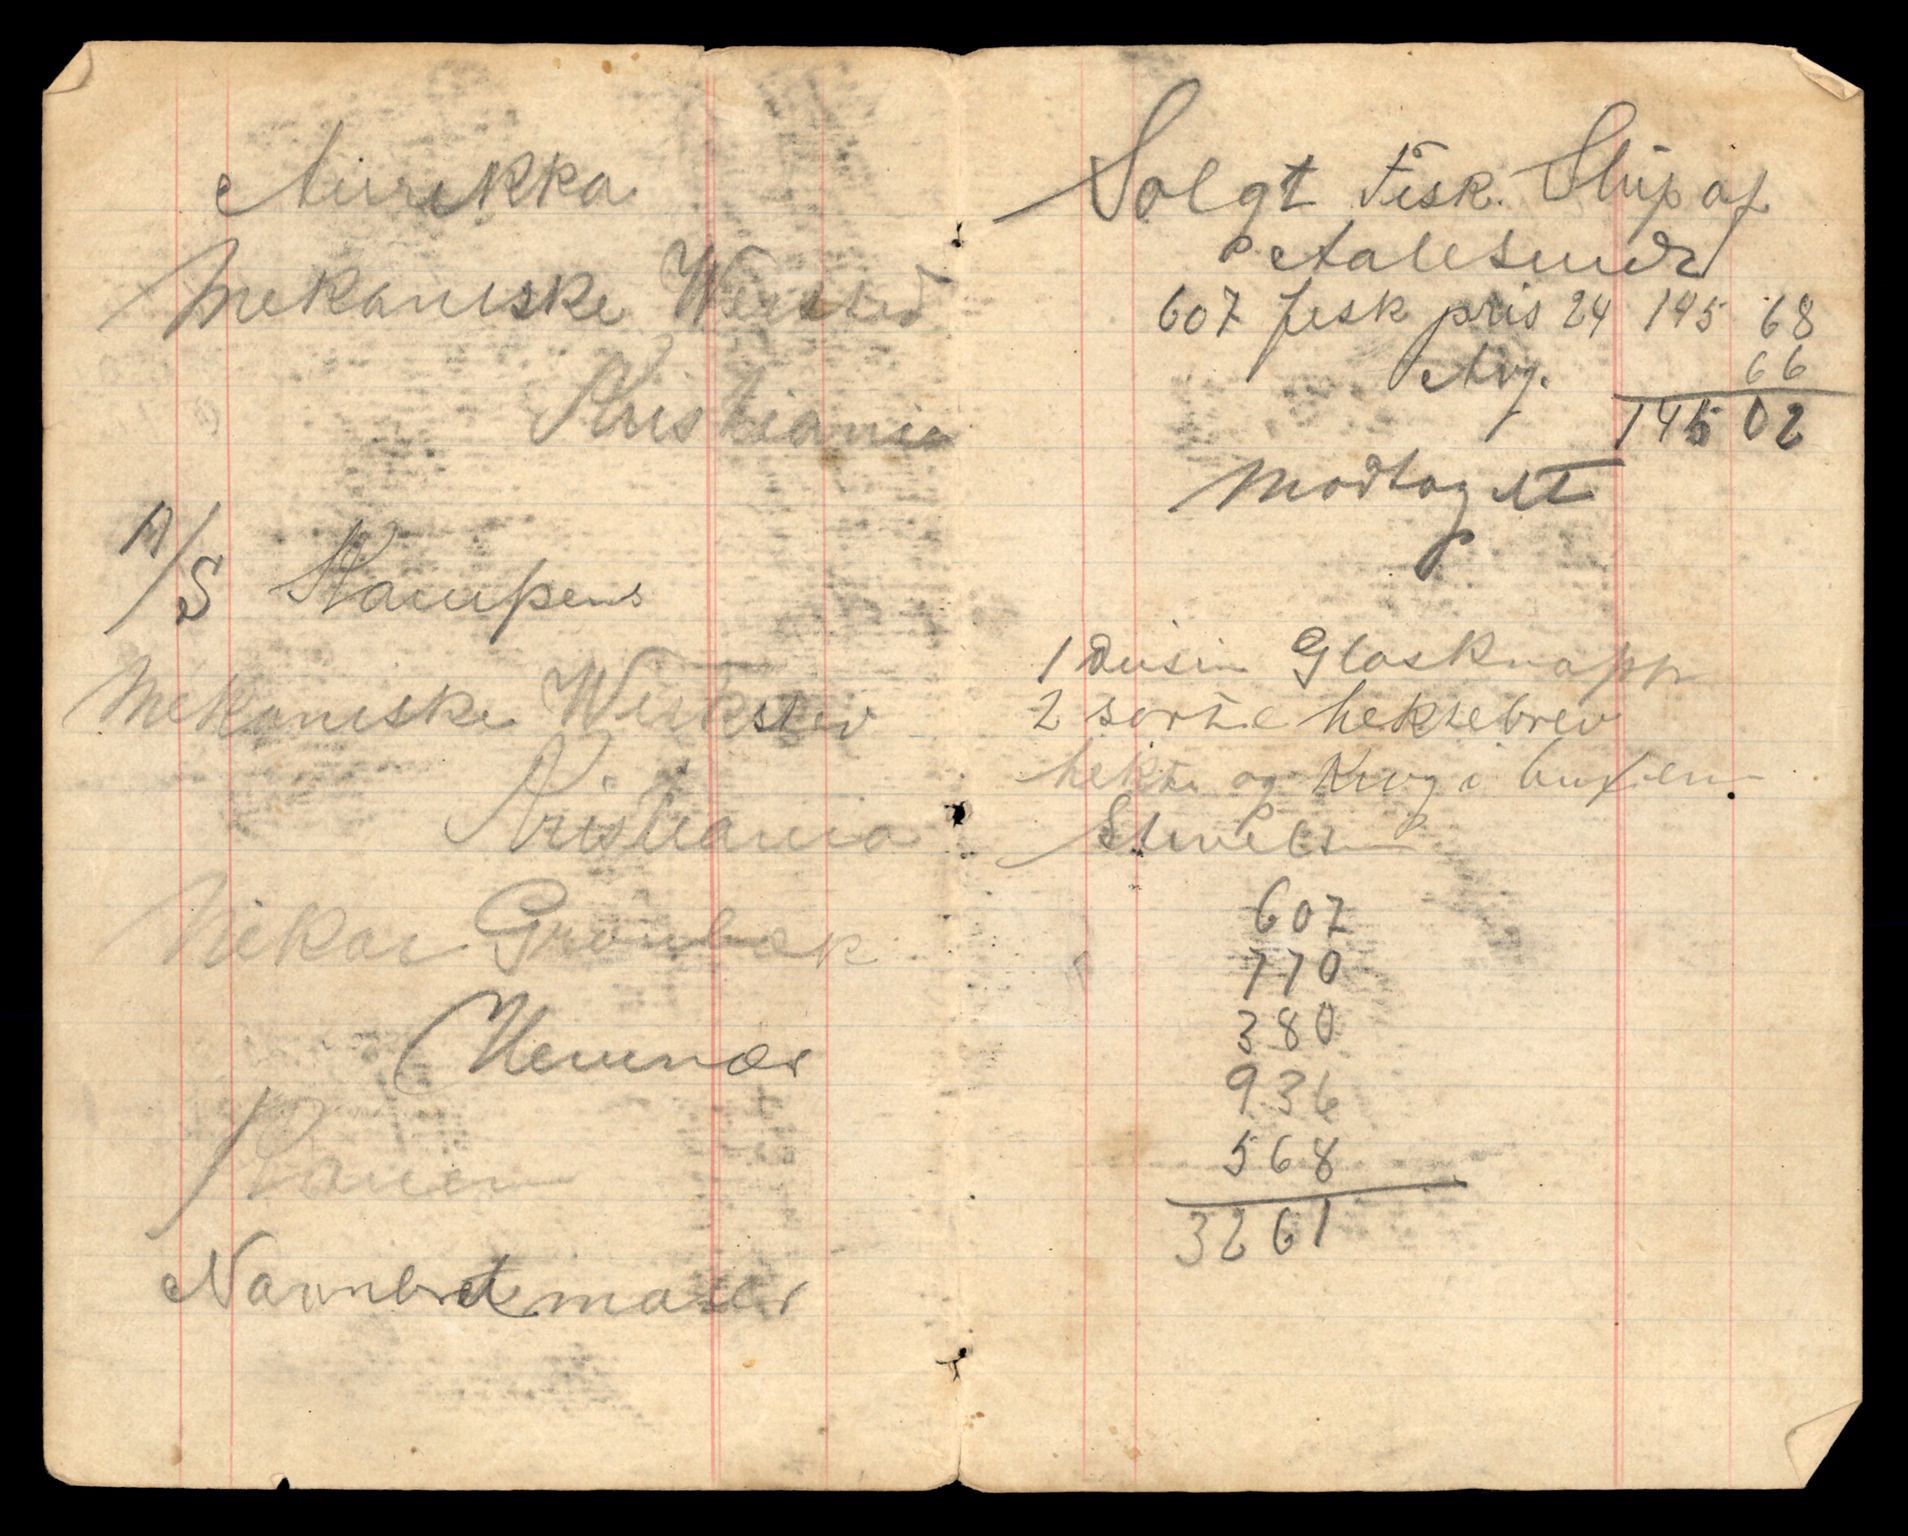 Aurekka
Mekaniske Werksted
Kristiania
A/S Kampens
Mekaniske Werksted
Kristiania
Nikar Grönbæk
Hemnæs
Ranen
Navnbret maler
Solgt Fisk. Slup af
Aalesund
607 fisk pris 24 145 68
Avg. 66
145 02
Modtaget
1 dusin Glasknapp
2 sorte hektebrev
hekte og Krog i buxen
607
770
380
936
568
3261